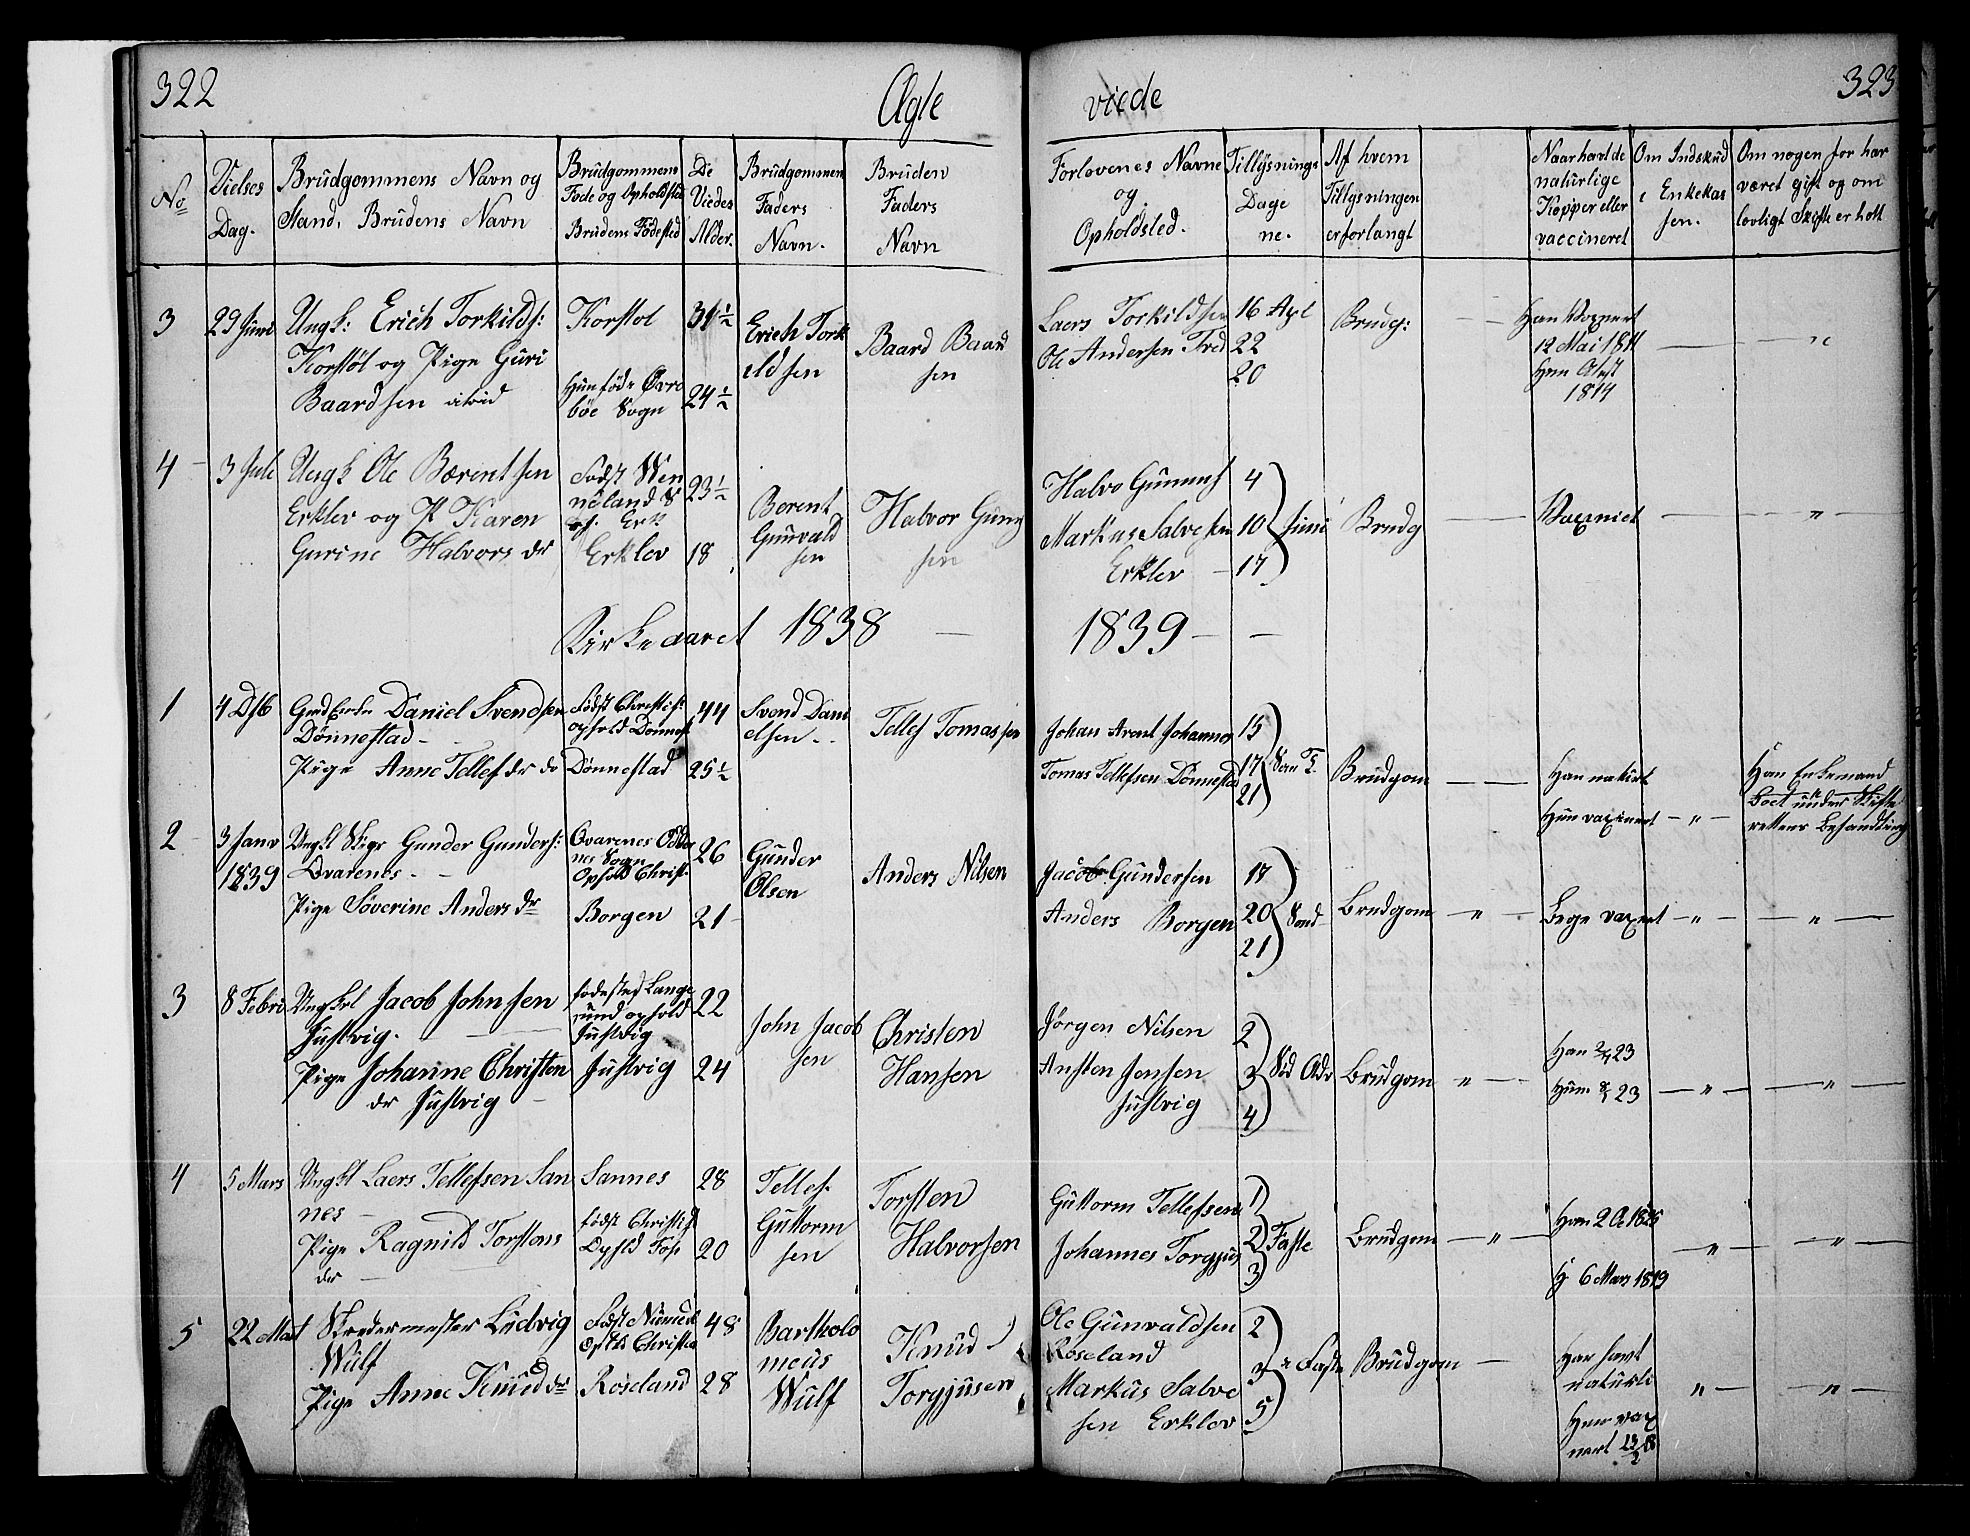 322
Ægte
viede
323
No
Vielses Dag.
Brudgommens Navn og Stand, Brudens Navn
Brudgommens Føde og Opholdsted Brudens Fødested
De Viedes Alder.
Brudgommens Faders Navn.
Bruden Faders Navn
Forlovenes Navne og Opholdsted.
Tillysnings Dage ne.
Af hvem Tillysningen er forlangt
Naar havt de natürlige Kopper eller vaccineret
Om Indskud i Enkekassen.
Om nogen før har været gift og om lovligt Skifte er holt
3
29 Juni
Ungk: Erich Torkilds:
Korstøl og Pige Guri
Baardsen
Korstøl
Hun föde Øvre
böe Sogn
31½
24½
Erich Tork
ildsen
Baard Baard
sen
Laers Torkildsen
Ole Andersen Tved
16 Apl
22
20
Brudg:
Han Vaxnert
12 Mai 1811
1814
4
3 Juli
Ungk Ole Bærentsen
Erklev og P Karen
Gurine Halvors dr
Födt Wen
neland
Erklev
23½
18
Berent
Gunvald
sen
Halvor Gun
sen
Halvo Gunnuf
Markus Salvesen
Erklev
4
10
17
Juni
Brudg
Vaxniet
"
Kirkeaaret 1838 — 1839 — —
1
4 Dsb
Daniel Svendsen
Dönnestad
Pige Anne Tellefs dr do
Födt Christs:
ophold Dönnest
Dönnestad
44
25½
Svend Dani
elsen
Tellef Tomassen
Johan Arent Johannes
Tomas Tellefsen Dönnestad
15
17
21
Brudgom
Han naturt
Hun vaxinert
"
Han Enkemand
Boet under Skifte
rettens Behandling
2
3 Janv
1839
Ungkl Gunder Gunders:
Qvarenes
Pige Söverine Anders dr
Qvarenes Odder
nes Sogn
Ophold Christ:
Borgen
26
21
Gunder
Olsen
Anders Nilsen
Jacob Gundersen
Anders Borgen
17
20
21
Brudgom
"
Bege vaxert
"
"
3
8 Febr
Ungkl Jacob Johnsen
Justvig.
Pige Johanne Christen
dr Justvig
födested Lange
sund ophold
Justvig
Justvig
22
24
John Jacob
sen
Christen
Hansen
Jörgen Nilsen
Ansten Jensen
Justvig
2
3
4
Brudgom
"
Han 23
Hun 23
"
"
4
5 Mars
Ungkl Laers Tellefsen San
nes
Pige Ragnild Torstens
dr
Sannes
födt Christs
28
20
Tellef
Guttorm
sen
Torsten
Halvorsen
Guttorm Tellefsen
Johannes Torgjus
1
2
3
Faste
Brudgom
"
6 Mars 1819
"
"
5
22 Mart
Skredermester Ludvig
Wulf
Pige Anne Knud dr
Roseland
48
28
Bartholo
meus
Wulf
Knud
Torgjusen
Ole Gunvaldsen
Roseland
Markus Salve
sen Erklev
2
3
5
Faste
Brudgom
Han havt
naturli
Hun vax
nert
"
"